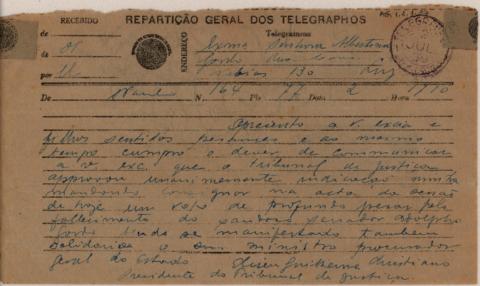 REPARTIÇÃO GERAL DOS TELEGRAPHOS
RECEBIDO
Telegramma
de
de
por
ENDEREÇO
Exma Senhora Albertina
130 Rio
De Paulo N. 164 Pls. 77 Data 2 Hora 1710
Apresento a v. excia e
filhos sentidos pesames e ao mesmo
tempo cumpro o dever de communicar
a v exc. que o tribunal de justiça
approvou unanimemente indicação minha
mandando consignar na acta da sessão
de hoje um voto de profundo pesar pelo
fallecimento do saudoso senador adolpho
gordo tendo se manifestado tambem
solidario o exmo ministro procurador
geral do Estado Guilherme Christiano
Presidente do Tribunal de Justiça.